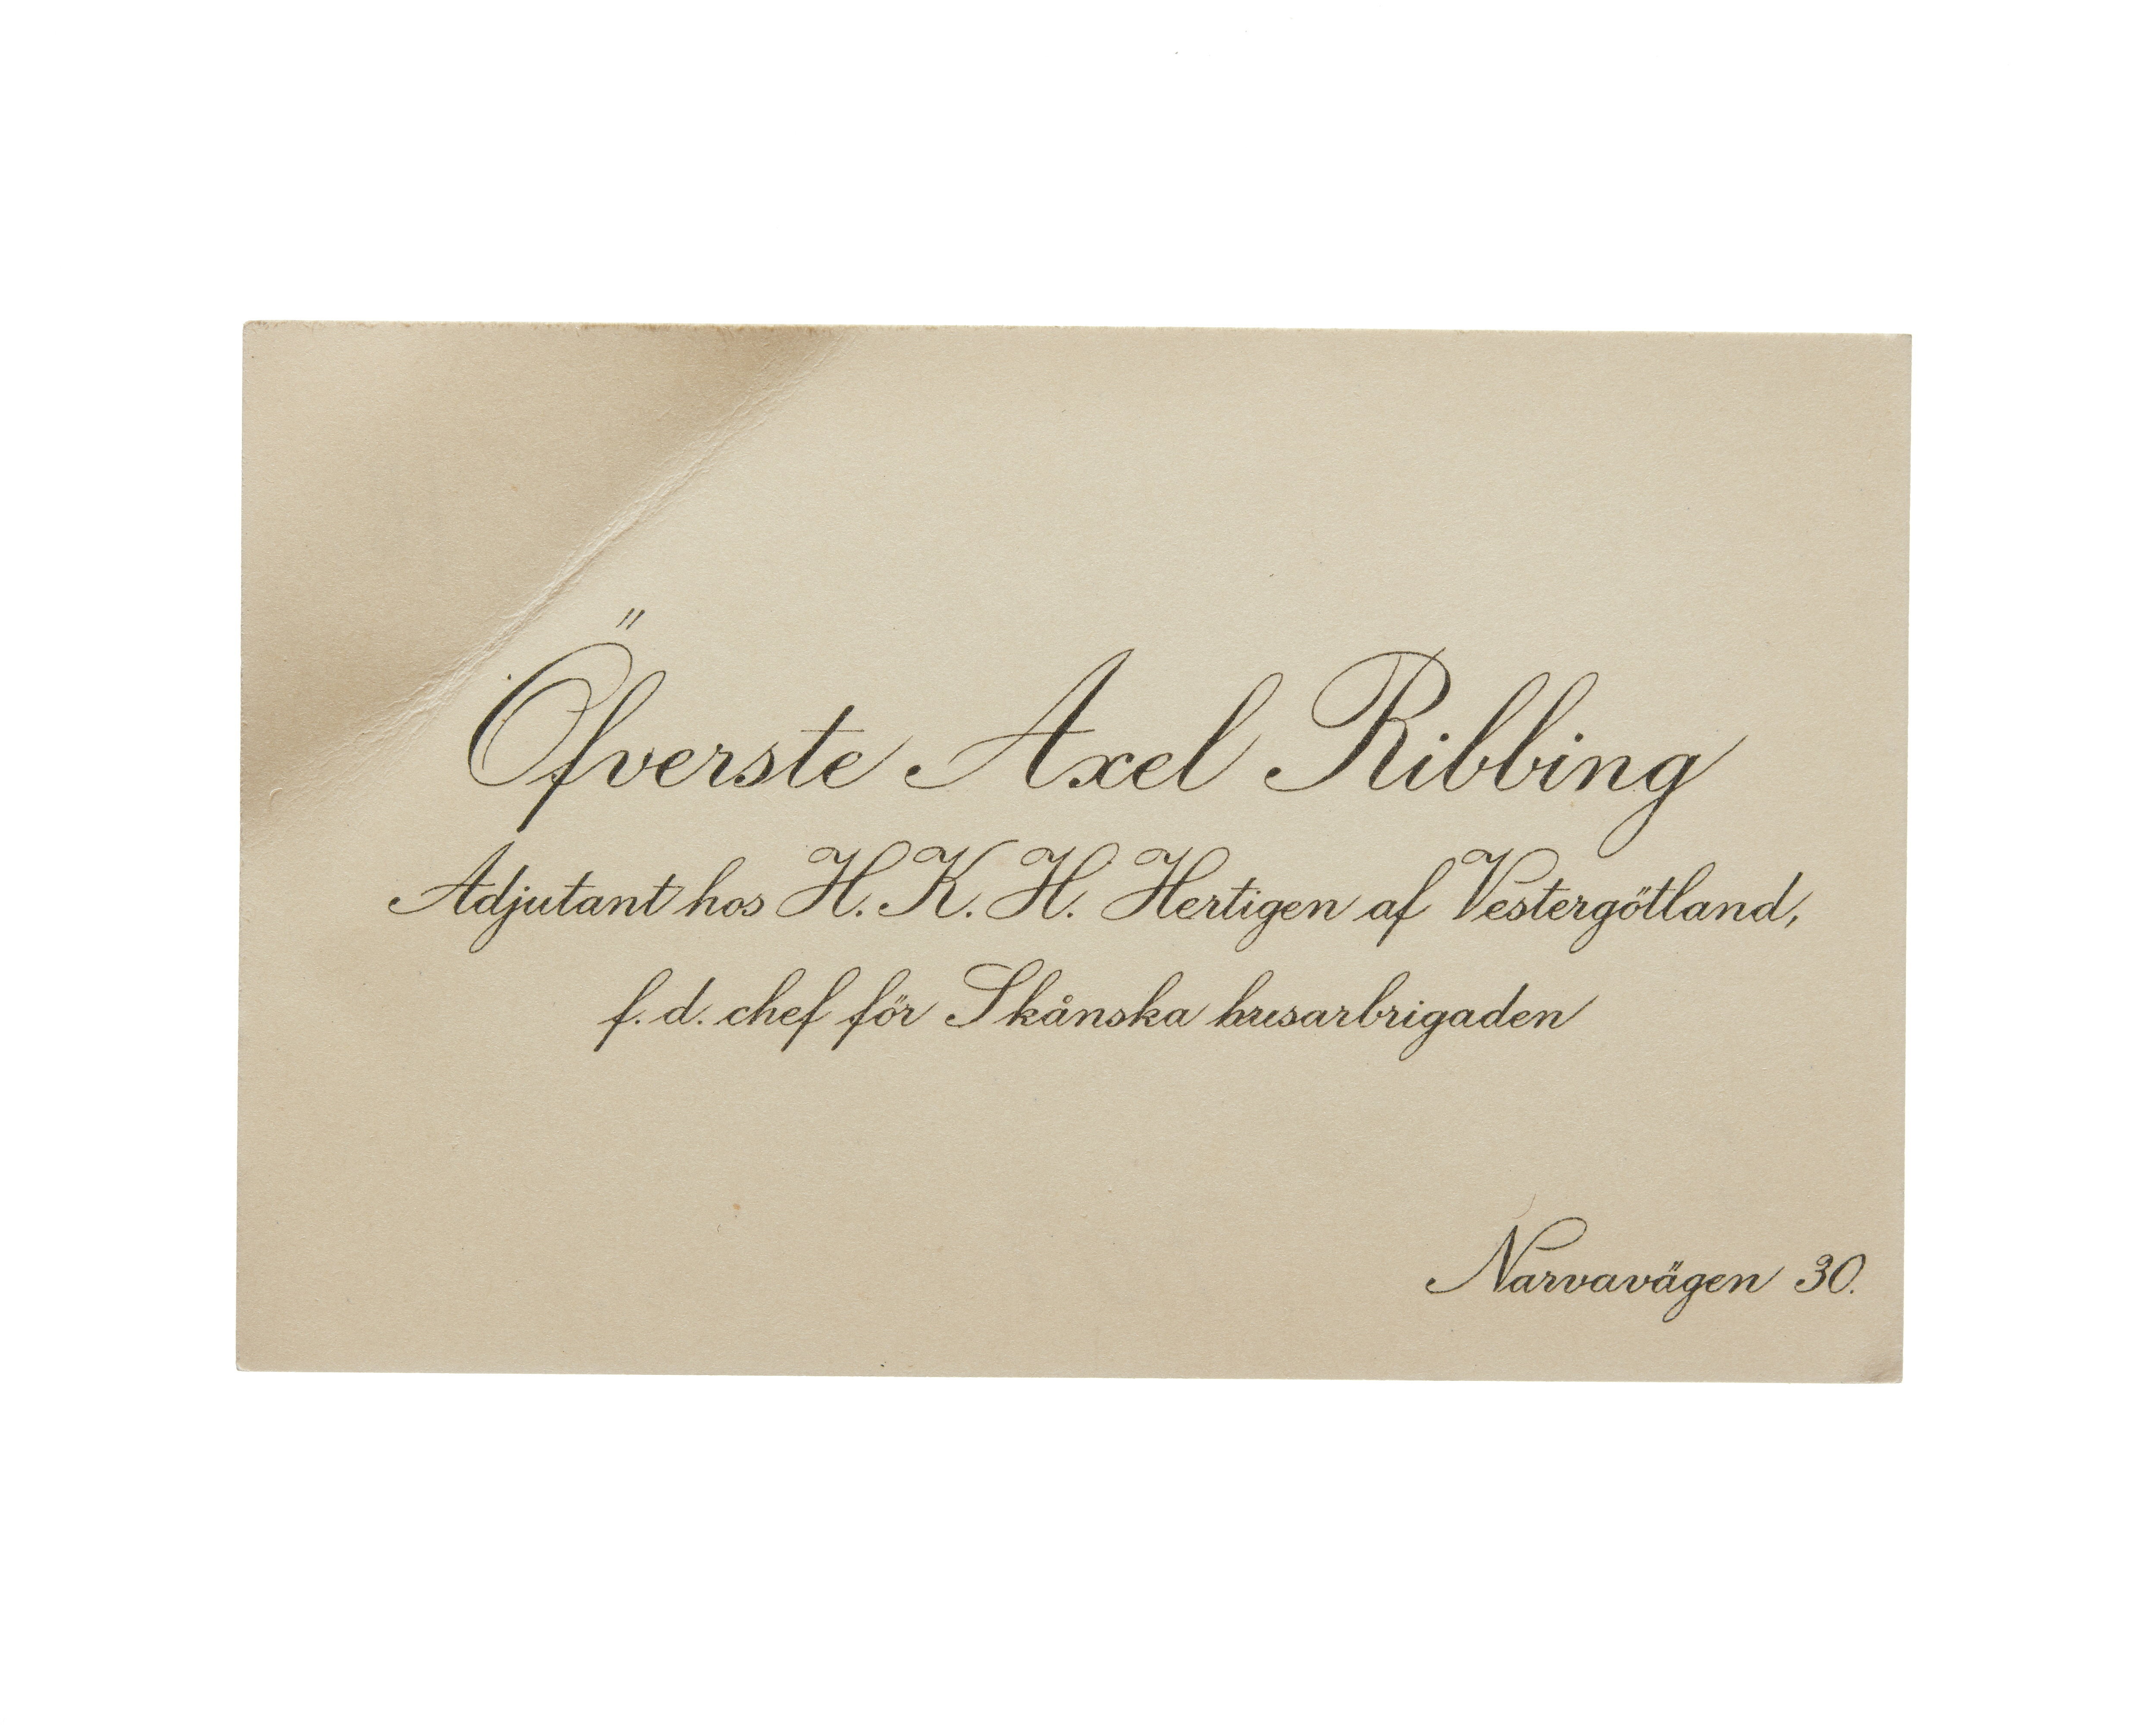 Öfverste Axel Ribbing
Adjutant hos H. K. H. Hertigen af Vestergötland,
f. d. chef för Skånska husarbrigaden
Narvavägen 30.